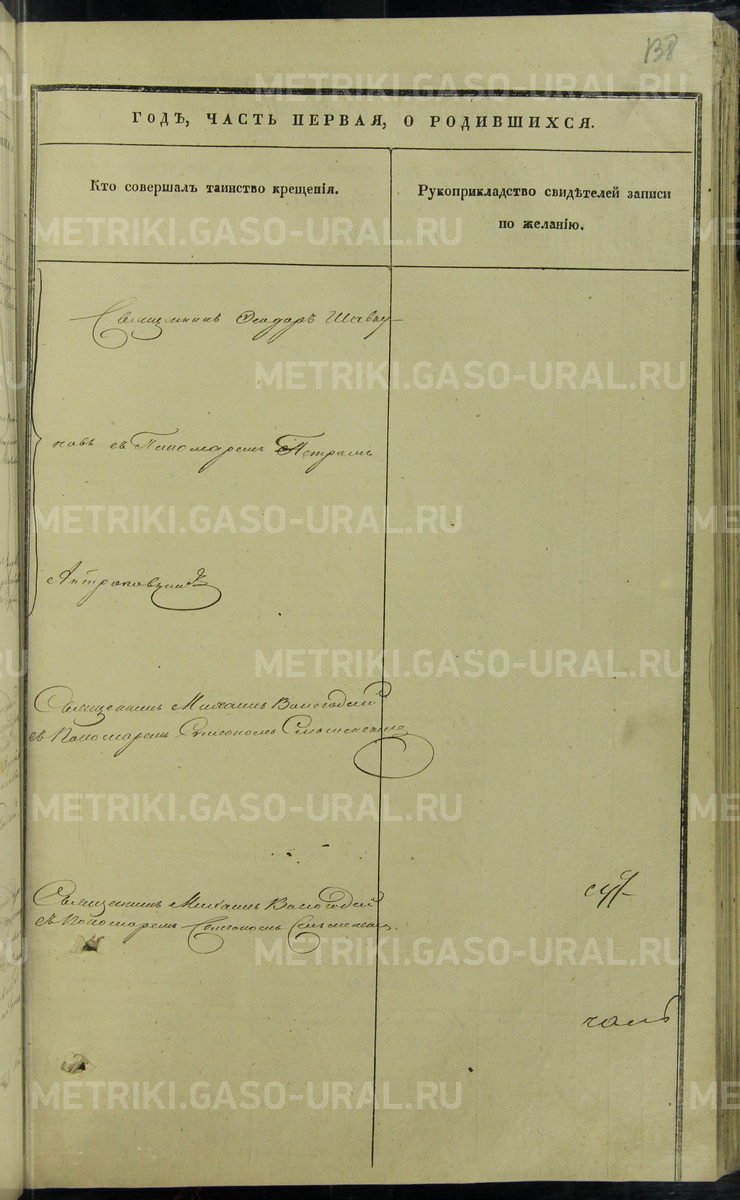 138
ГОДЪ, ЧАСТЬ ПЕРВАЯ, О РОДИВШИХСЯ.
Кто совершалъ таинство крещенія.
Рукоприкладство свидѣтелей записи
по желанію.
Священникъ Ѳеодоръ
ковъ съ Пономаремъ Петромъ
Священникъ Михаилъ Вологодскій
съ Пономаремъ Симеономъ
Священникъ Михаилъ Вологодскій
съ Пономаремъ Симеономъ
METRIKI.GASO-URAL.RU